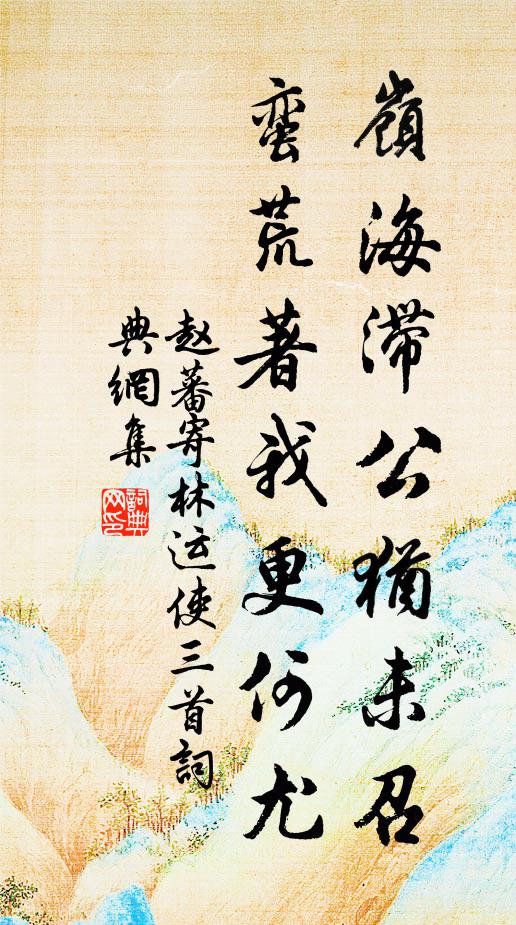 嶺海滯公猶未召
蛮荒著我更何尤
赵蕃寄林运使三首詞
典網集
詞典網印